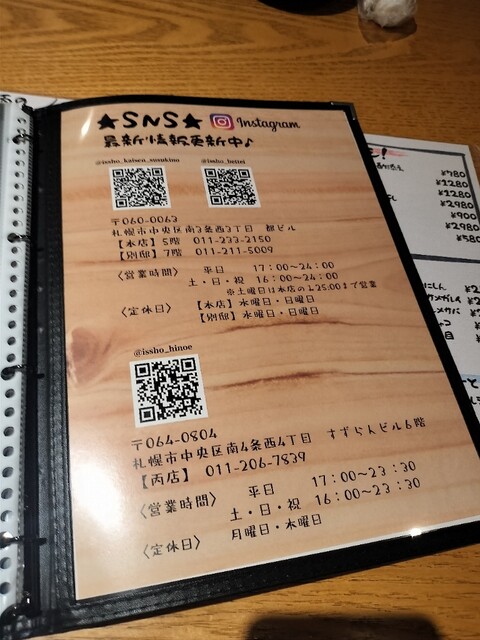 ★SNS★ Instagram
最新情報更新中♪
@issho_kaisen_susukino @issho_bettei
〒060-0063
札幌市中央区南3条西3丁目 都ビル
【本店】5階 011-233-2150
【別邸】7階 011-211-5009
〈営業時間〉 平日 17:00~24:00
土・日・祝 16:00~24:00
※土曜日は本店のみ25:00まで営業
〈定休日〉 【本店】水曜日・日曜日
【別邸】水曜日・日曜日
@issho_hinoe
〒064-0804
札幌市中央区南4条西4丁目 すずらんビル6階
【丙店】 011-206-7839
〈営業時間〉 平日 17:00~23:30
土・日・祝 16:00~23:30
〈定休日〉 月曜日・木曜日
¥780
¥1280
¥1280
¥2980
¥900
¥2980
¥580
にしん